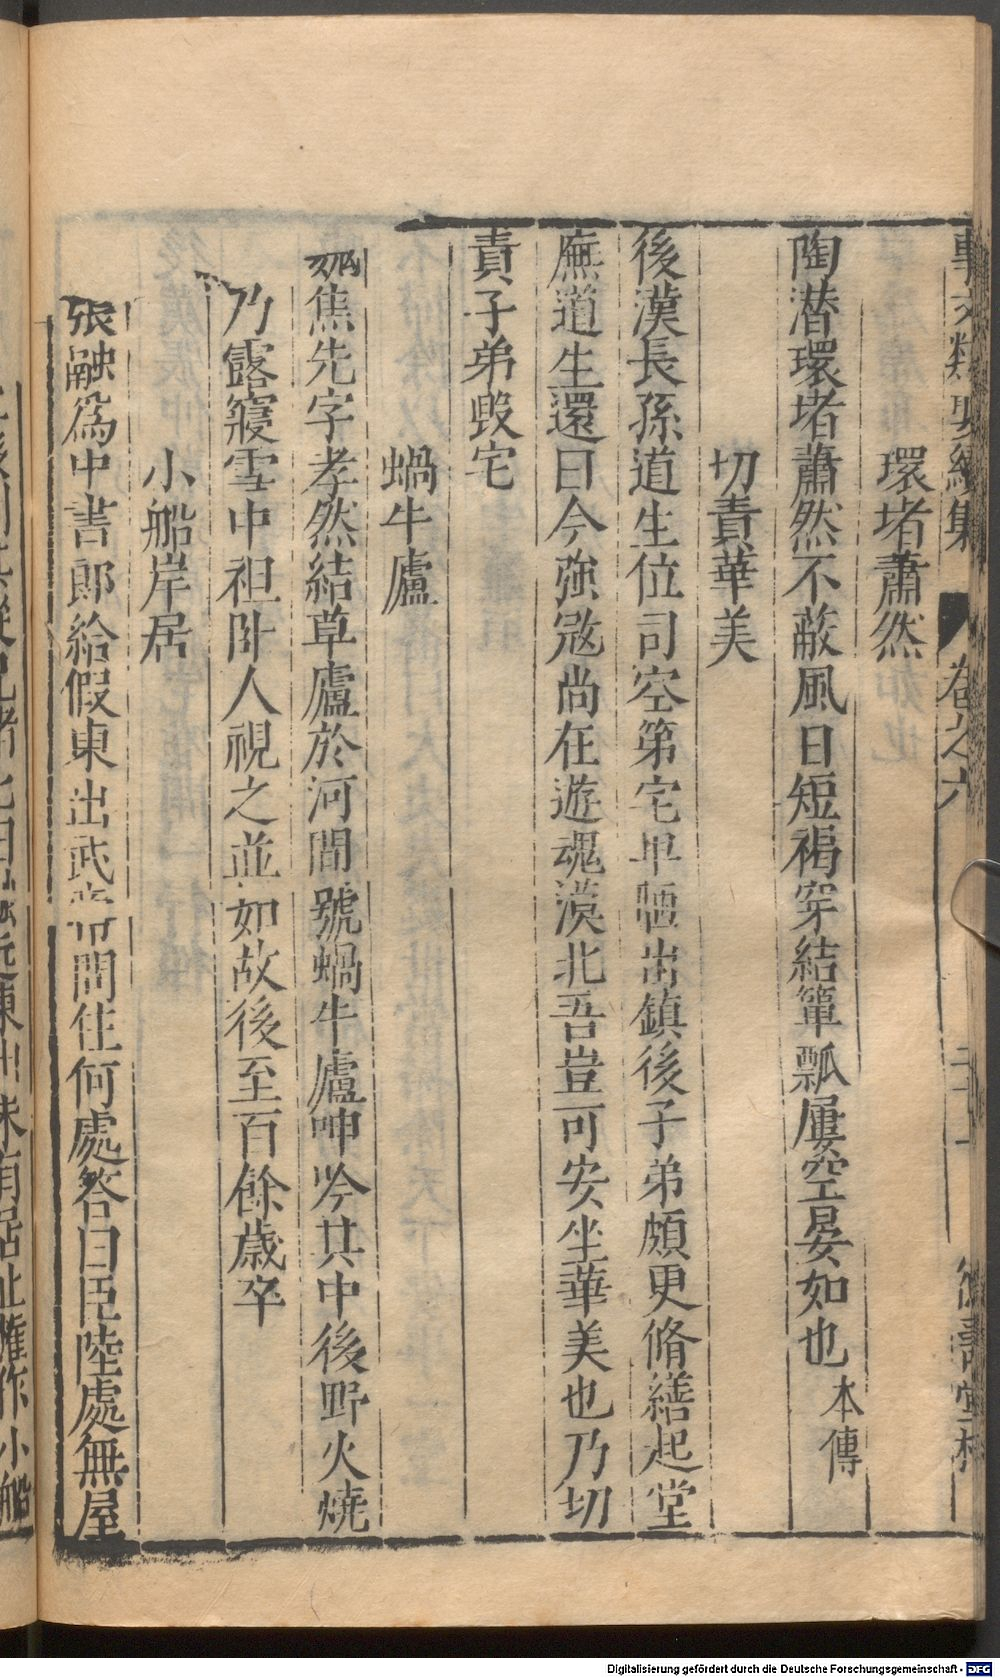 事文類聚續集 卷之六 二十一 德壽堂梓
環堵蕭然
陶潛環堵蕭然不蔽風日短褐穿結簞瓢屢空晏如也 本傳
切責華美
後漢長孫道生位司空第宅卑陋出鎮後子弟頗更脩繕起堂
廡道生還曰今強寇尚在遊魂漠北吾豈可安坐華美也乃切
責子弟毀宅
蝸牛廬
焦先字孝然結草廬於河間號蝸牛廬呻吟其中後野火燒
乃露寢雪中袒卧人視之並如故後至百餘歲卒
小船岸居
張融為中書郎給假東出武帝問住何處答曰臣陸處無屋
東出未有居止權作小船
Digitalisierung gefördert durch die Deutsche Forschungsgemeinschaft - DFG